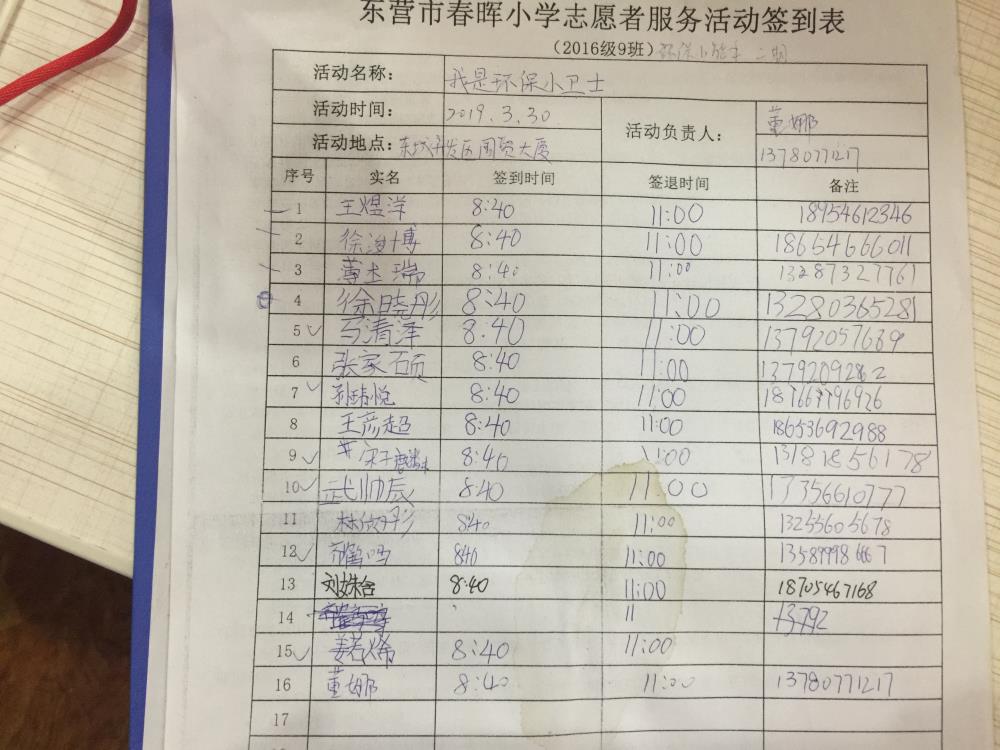 东营市春晖小学志愿者服务活动签到表
(2016级9班) 环保小能手 二期
活动名称: 我是环保小卫士
活动时间: 2019.3.30 活动负责人: 董娜
活动地点: 东城开发区国贸大厦 13780771217
序号 实名 签到时间 签退时间 备注
1 王煜洋 8:40 11:00 18954612346
2 徐浚博 8:40 11:00 18654666011
3 薄玉瑞 8:40 11:00 13287327761
4 徐晓彤 8:40 11:00 13280365281
5 马清泽 8:40 11:00 13792057689
6 张家硕 8:40 11:00 13792092862
7 悦 8:40 11:00 18766796926
8 王彦超 8:40 11:00 18653692988
9 宋子 8:40 11:00 13181856178
10 武帅辰 8:40 11:00 17356610777
11 林 彤 840 11:00 13255605678
12 鸣 840 11:00 13589998667
13 刘姝含 8:40 11:00 18705467168
14 11 13792
15 姜若烯 8:40 11:00
16 董娜 8:40 11:00 13780771217
17